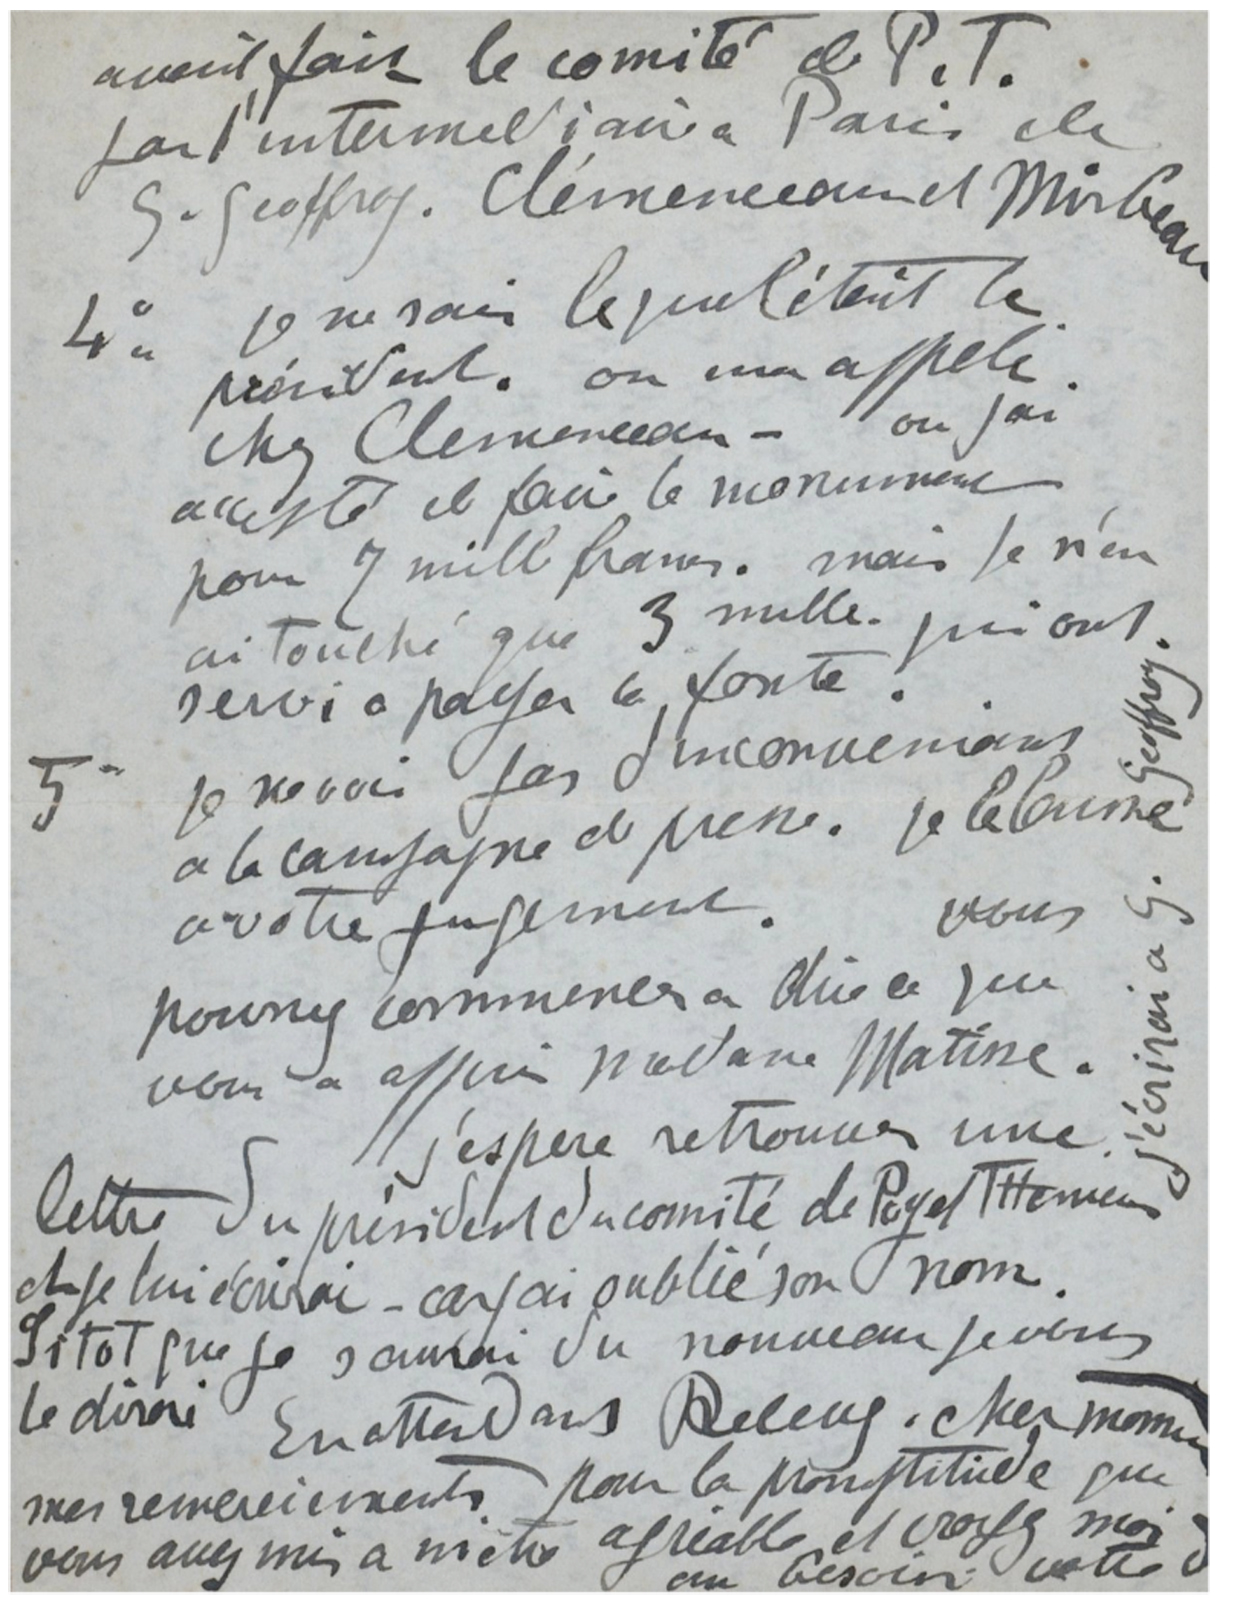 avait fait le comité de P.T.
par l'intermédiaire a Paris de
G. Geoffroy. Clémenceau et Mirbeau
4° je ne sais lequel était le
président. on ma appelé
chez Clemenceau - ou jai
accepté de faire le monument
pour 7 mill francs. mais je n'en
ai touché que 3 mille. qui ont
servi a payer la fonte.
5- je ne vois pas d'inconvenians
a la campagne de presse. je le laisse
a votre jugement. vous
pourrez commencer a dire ce que
vous a appris madame Matisse.
j'espere retrouver une
lettre du président du comité de Puget Theniers
et je lui écrirai - car jai oublié son nom.
Sitot que je saurai du nouveau je vous
le dirai En attendant Recevez. cher
mes remerciements pour la promptitude que
vous avez mis a metre agréable et croyez moi
au besoin votre
j'écrirai a G. Geoffroy.